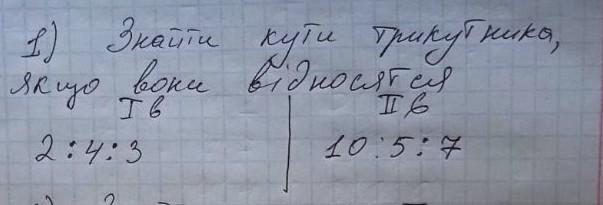 1) Знайти кути трикутника,
якщо вони відносятся
I в II в
2:4:3 10:5:7